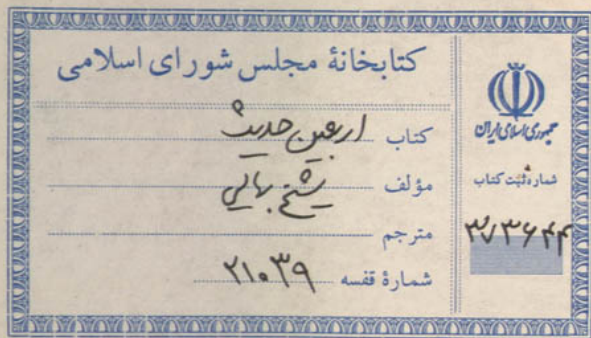 کتابخانهٔ مجلس شورای اسلامی
کتاب اربعین حدیث
مؤلف شیخ بهائی
مترجم
شمارهٔ قفسه ۲۱۰۳۹
جمهوری اسلامی ایران
شماره ثبت کتاب